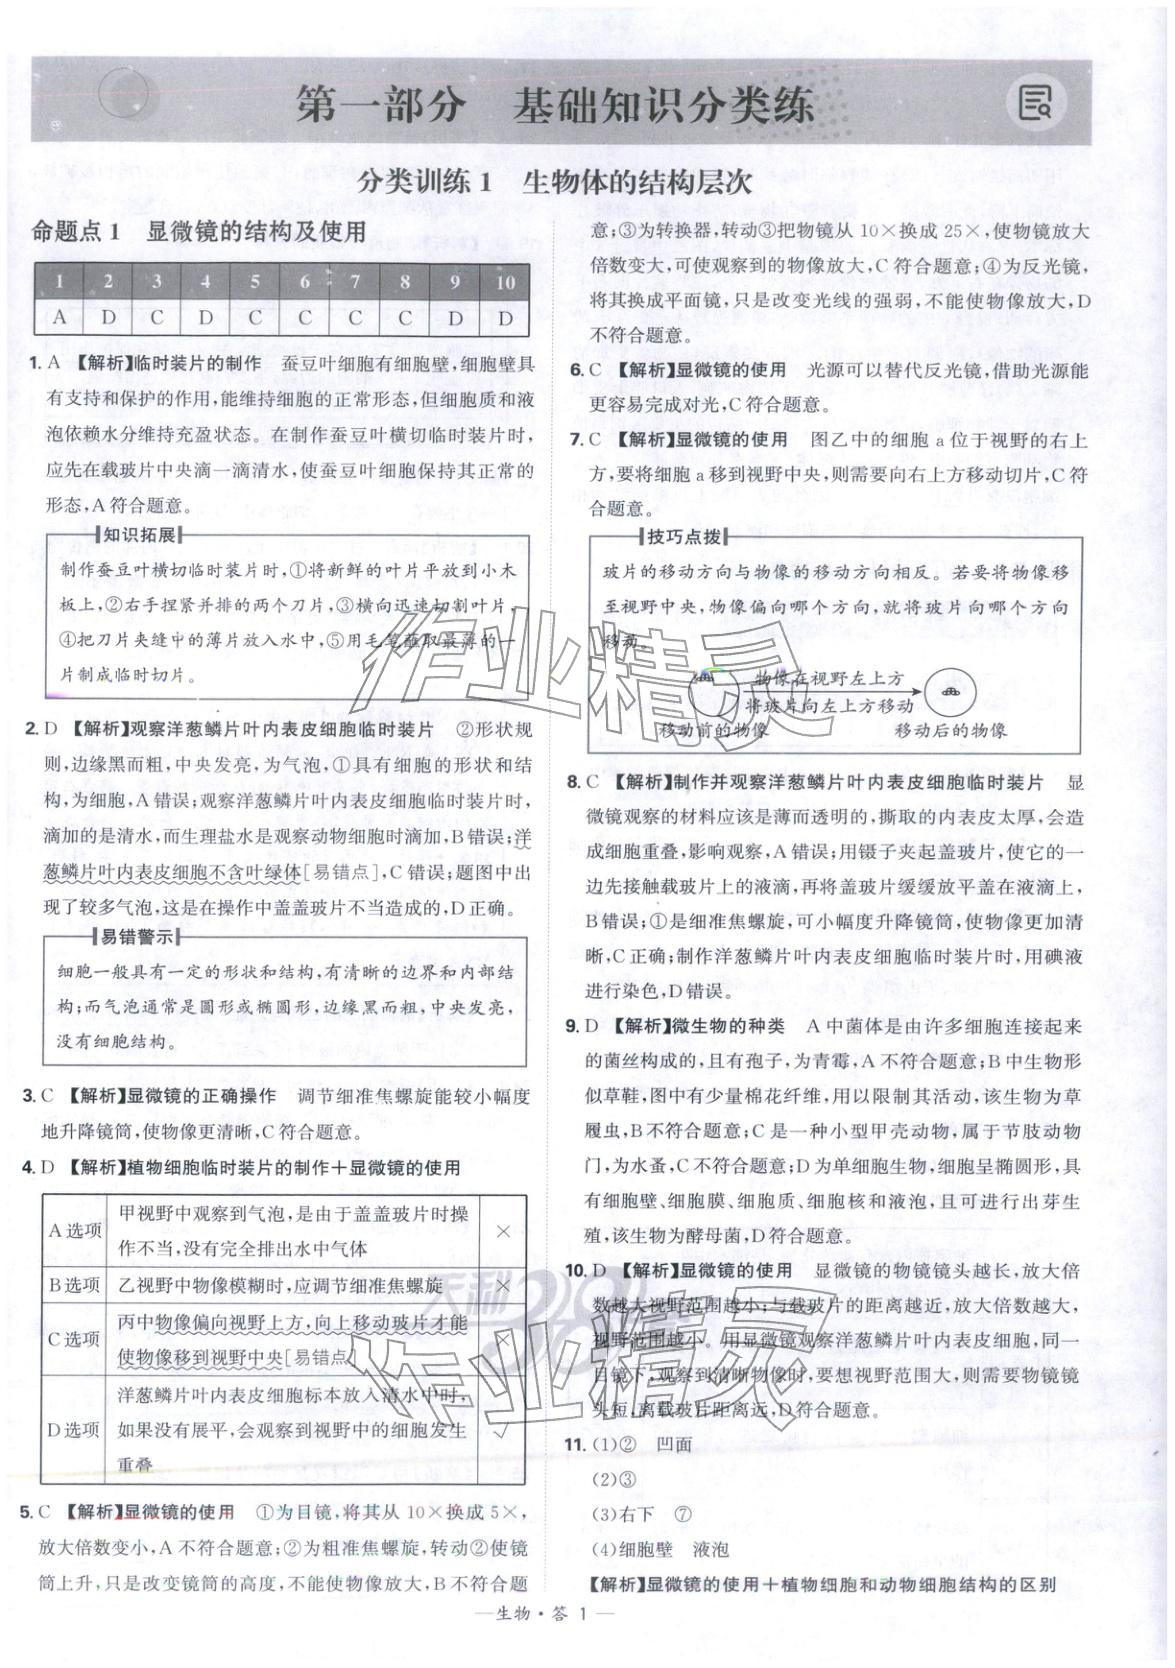 第一部分　基础知识分类练
分类训练1　生物体的结构层次
命题点1　显微镜的结构及使用
1 2 3 4 5 6 7 8 9 10
A D C D C C C C D D
1. A 【解析】临时装片的制作　蚕豆叶细胞有细胞壁,细胞壁具
有支持和保护的作用,能维持细胞的正常形态,但细胞质和液
泡依赖水分维持充盈状态。在制作蚕豆叶横切临时装片时,
应先在载玻片中央滴一滴清水,使蚕豆叶细胞保持其正常的
形态,A符合题意。
知识拓展
制作蚕豆叶横切临时装片时,①将新鲜的叶片平放到小木
板上,②右手捏紧并排的两个刀片,③横向迅速切割叶片,
④把刀片夹缝中的薄片放入水中,⑤用毛笔蘸取最薄的一
片制成临时切片。
2. D 【解析】观察洋葱鳞片叶内表皮细胞临时装片　②形状规
则,边缘黑而粗,中央发亮,为气泡,①具有细胞的形状和结
构,为细胞,A错误;观察洋葱鳞片叶内表皮细胞临时装片时,
滴加的是清水,而生理盐水是观察动物细胞时滴加,B错误;洋
葱鳞片叶内表皮细胞不含叶绿体[易错点],C错误;题图中出
现了较多气泡,这是在操作中盖盖玻片不当造成的,D正确。
易错警示
细胞一般具有一定的形状和结构,有清晰的边界和内部结
构;而气泡通常是圆形或椭圆形,边缘黑而粗,中央发亮,
没有细胞结构。
3. C 【解析】显微镜的正确操作　调节细准焦螺旋能较小幅度
地升降镜筒,使物像更清晰,C符合题意。
4. D 【解析】植物细胞临时装片的制作+显微镜的使用
A选项 甲视野中观察到气泡,是由于盖盖玻片时操
作不当,没有完全排出水中气体 ×
B选项 乙视野中物像模糊时,应调节细准焦螺旋 ×
C选项 丙中物像偏向视野上方,向上移动玻片才能
使物像移到视野中央[易错点] ×
D选项 洋葱鳞片叶内表皮细胞标本放入清水中时,
如果没有展平,会观察到视野中的细胞发生
重叠 √
5. C 【解析】显微镜的使用　①为目镜,将其从10×换成5×,
放大倍数变小,A不符合题意;②为粗准焦螺旋,转动②使镜
筒上升,只是改变镜筒的高度,不能使物像放大,B不符合题
意;③为转换器,转动③把物镜从10×换成25×,使物镜放大
倍数变大,可使观察到的物像放大,C符合题意;④为反光镜,
将其换成平面镜,只是改变光线的强弱,不能使物像放大,D
不符合题意。
6. C 【解析】显微镜的使用　光源可以替代反光镜,借助光源能
更容易完成对光,C符合题意。
7. C 【解析】显微镜的使用　图乙中的细胞a位于视野的右上
方,要将细胞a移到视野中央,则需要向右上方移动切片,C符
合题意。
技巧点拨
玻片的移动方向与物像的移动方向相反。若要将物像移
至视野中央,物像偏向哪个方向,就将玻片向哪个方向
移动。
物像在视野左上方
将玻片向左上方移动
移动前的物像　移动后的物像
8. C 【解析】制作并观察洋葱鳞片叶内表皮细胞临时装片　显
微镜观察的材料应该是薄而透明的,撕取的内表皮太厚,会造
成细胞重叠,影响观察,A错误;用镊子夹起盖玻片,使它的一
边先接触载玻片上的液滴,再将盖玻片缓缓放平盖在液滴上,
B错误;①是细准焦螺旋,可小幅度升降镜筒,使物像更加清
晰,C正确;制作洋葱鳞片叶内表皮细胞临时装片时,用碘液
进行染色,D错误。
9. D 【解析】微生物的种类　A中菌体是由许多细胞连接起来
的菌丝构成的,且有孢子,为青霉,A不符合题意;B中生物形
似草鞋,图中有少量棉花纤维,用以限制其活动,该生物为草
履虫,B不符合题意;C是一种小型甲壳动物,属于节肢动物
门,为水蚤,C不符合题意;D为单细胞生物,细胞呈椭圆形,具
有细胞壁、细胞膜、细胞质、细胞核和液泡,且可进行出芽生
殖,该生物为酵母菌,D符合题意。
10. D 【解析】显微镜的使用　显微镜的物镜镜头越长,放大倍
数越大视野范围越小;与载玻片的距离越近,放大倍数越大,
视野范围越小。用显微镜观察洋葱鳞片叶内表皮细胞,同一
目镜下,观察到清晰物像时,要想视野范围大,则需要物镜镜
头短,离载玻片距离远,D符合题意。
11. (1)②　凹面
(2)③
(3)右下　⑦
(4)细胞壁　液泡
【解析】显微镜的使用+植物细胞和动物细胞结构的区别
生物·答 1
作业精灵
天利38套
作业精灵